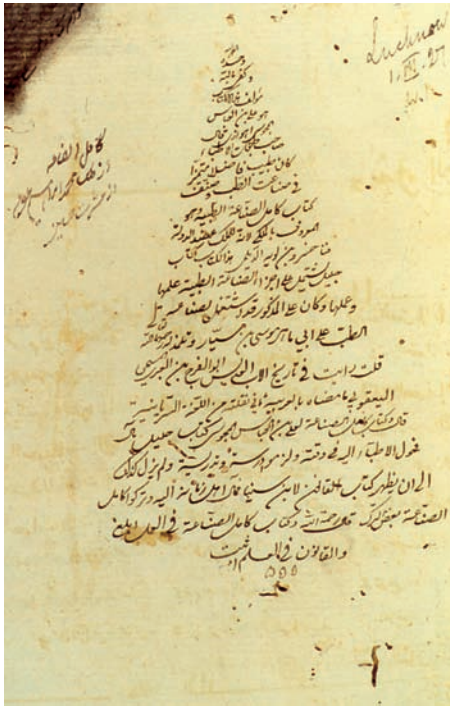 Lucknow
كامل الصناعه
الله
وحده
وكفى
مؤلف هذا الكتاب
هو علي بن العباس
المجوسي الاهوازي قال
صاحب طبقات الاطباء
كان طبيبا فاضلا متميزا
في صناعت الطب وصنف
كتاب كامل الصناعة الطبية هو
المعروف بالملكي لانه للملك عضد الدولة
فنا خسرو بن بويه الديلمي هذا الكتاب كتاب
جليل مشتمل على اجزاء الصناعة الطبية علمها
وعملها وكان علي المذكور قد اشتغل بصناعة
الطب على ابي ماهر موسى بن سيار وتلمذ له
قلت رايت في تاريخ الاب ابو الفرج بن العبري
اليعقوبي ما معناه بالعربية نقلته من اللغة السريانية
قال وكتاب كامل الصناعة لعلي بن العباس المجوسي كتاب جليل مال
فحول الاطباء اليه في وقته ولزموا درسه ولم يزل كذلك
الى ان ظهر كتاب القانون لابن سينا فمال اهل اليه وترك كامل
الصناعة بعض الترك قلت رحمه الله وكتاب كامل الصناعة في العمل ابلغ
والقانون في العلم اثبت